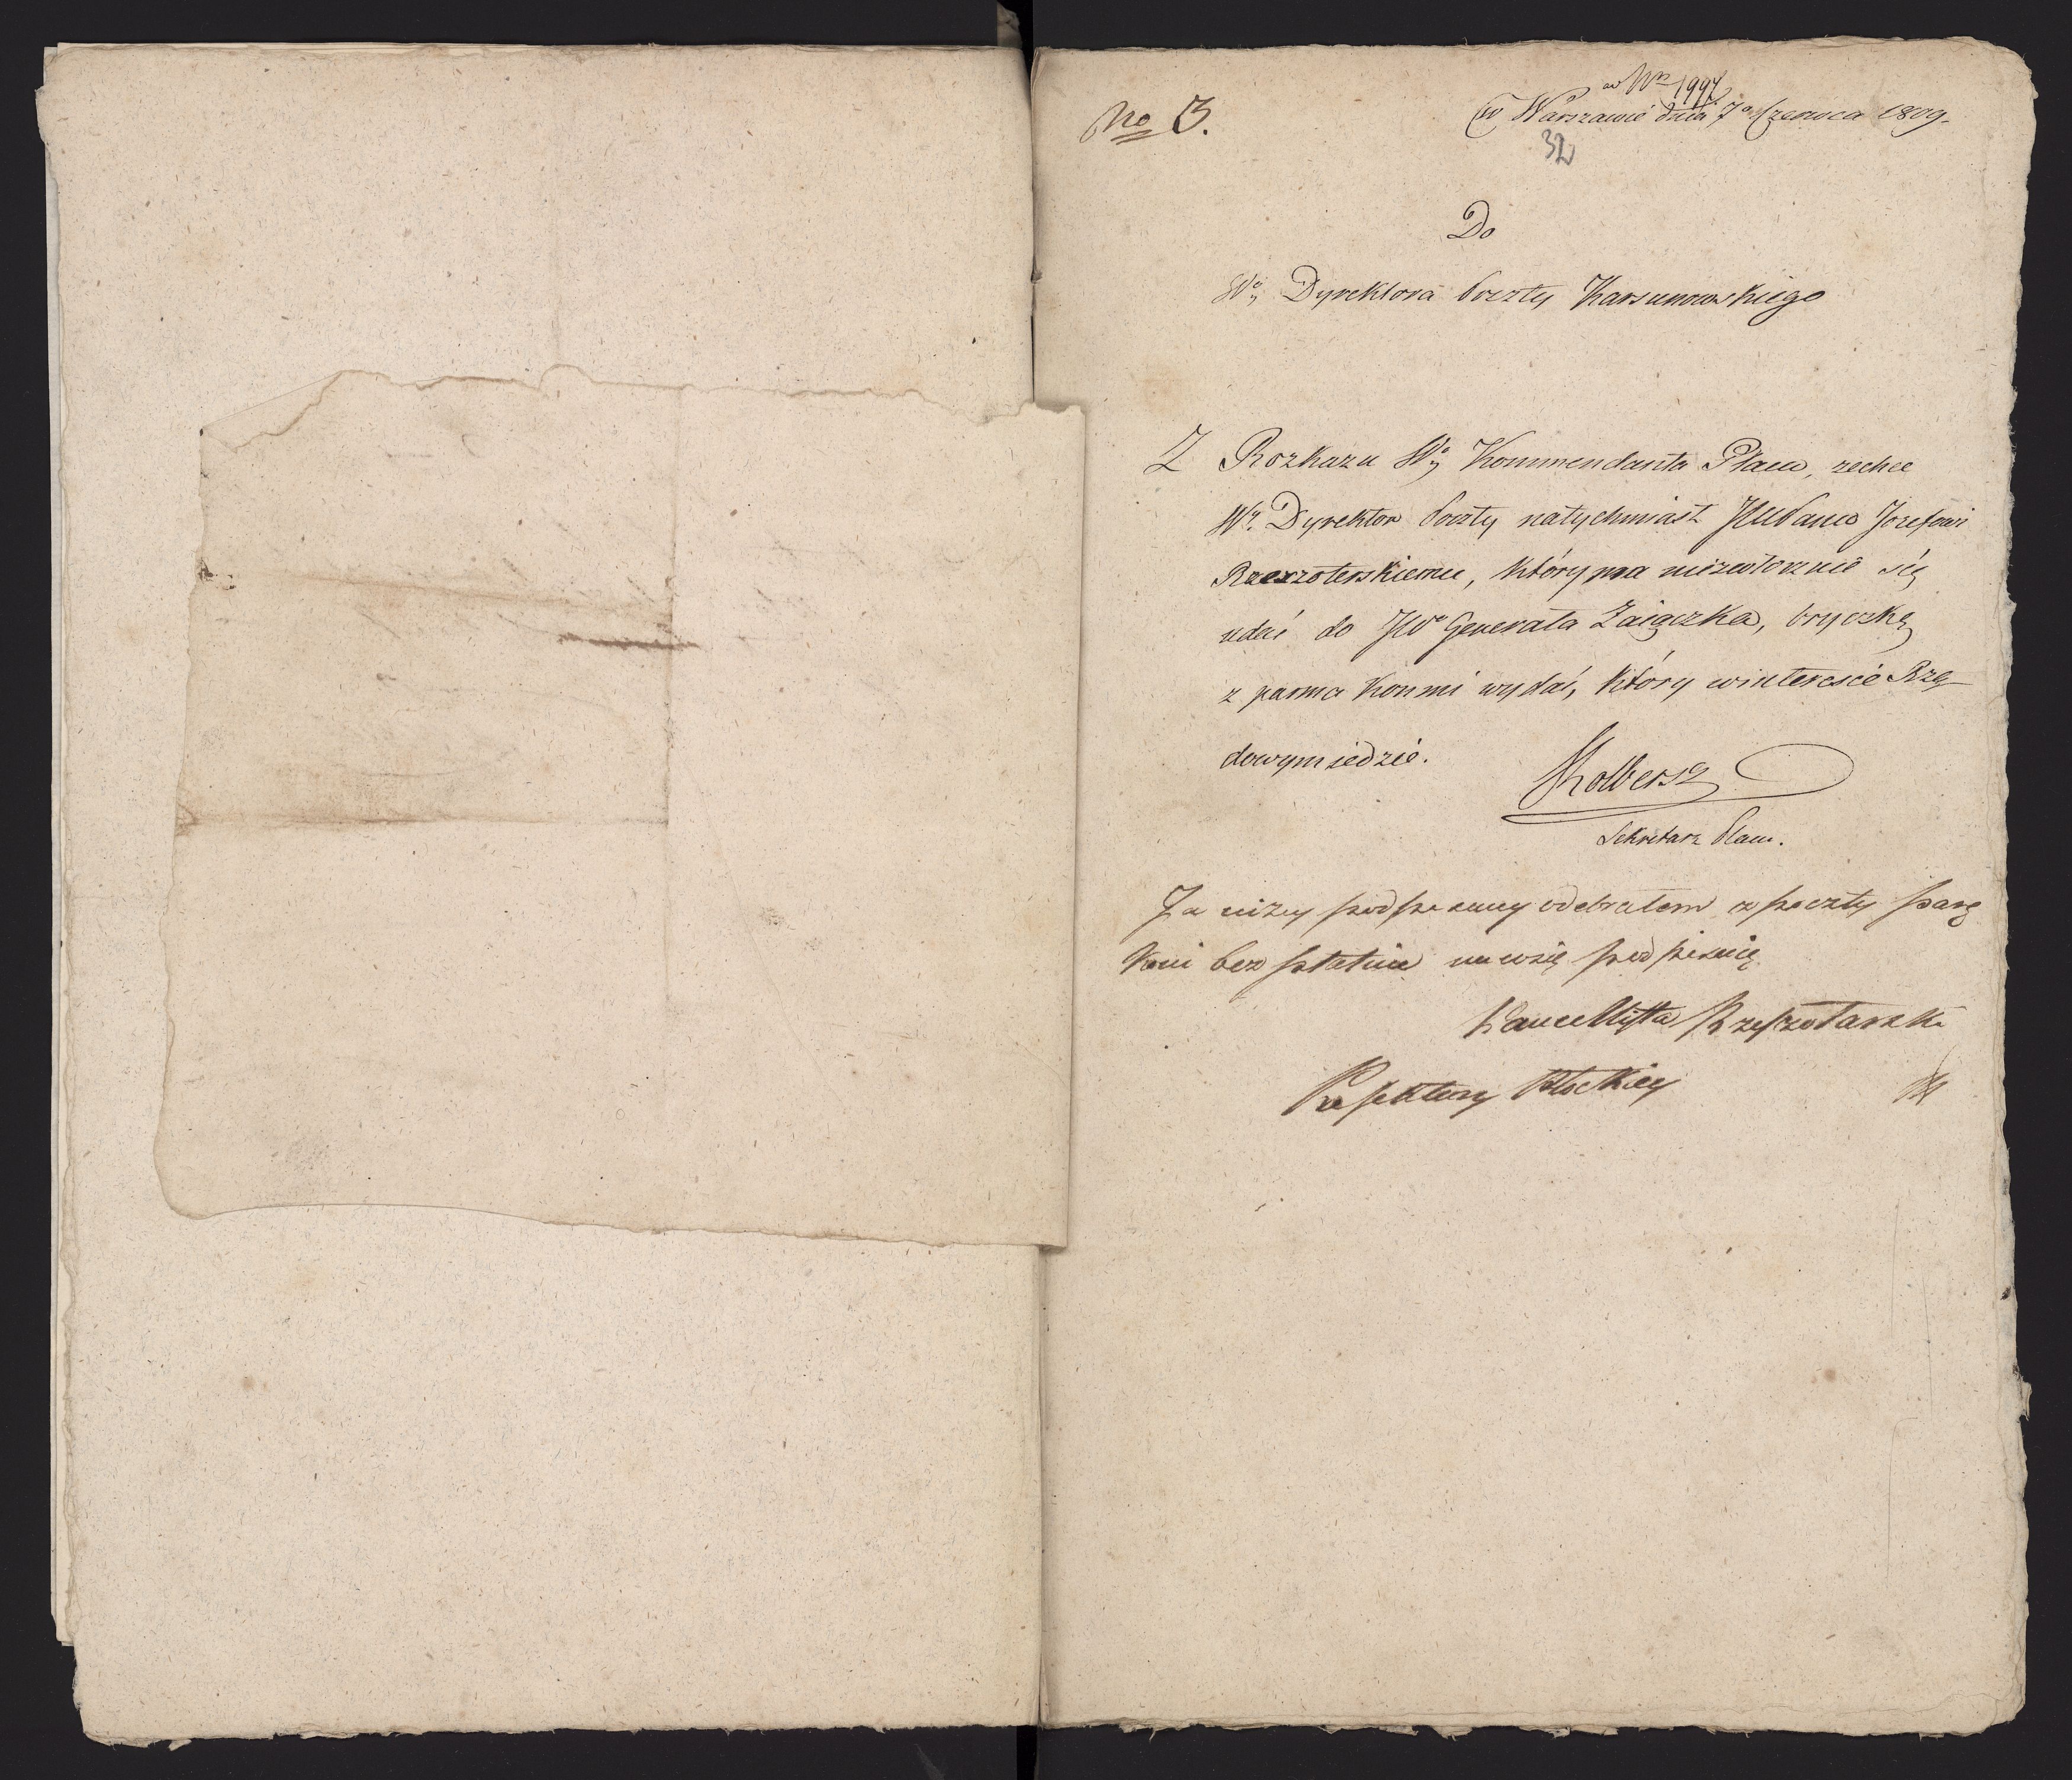 No 3.
ad Nrm 1997
w Warszawie dnia 7o Czerwca 1809.
32
Do
Wo Dyrektora Poczty Karsunowskiego
Z Rozkazu Wo Kommendanta Placu, zechce
Wy. Dyrektor Poczty natychmiast JP Panu Jozefowi
Rzeszoterskiemu, który ma niezwłocznie się
udać do JWo Generała Zaiączka, bryczkę
z parma Konmi wydać, który w interesie Rzą-
dowym iedzie.
Kolberg
Sekretarz Placu.
Ja niżey podpisany odebrałem z poczty parę
koni bez płatnie na co się podpisuię
Kancellista Rzeszotarski
Prefektury Płockiey